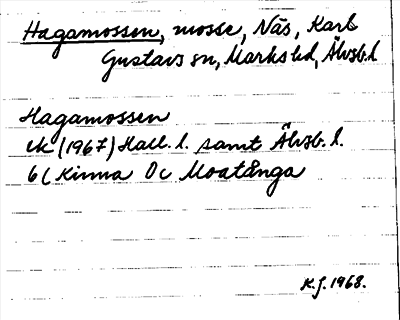 Hagamossen, mosse, Näs, Karl
Gustavs sn, Marks hd, Älvsb. l
Hagamossen
ek (1967) Hall. l. samt Älvsb. l.
6C Kinna 0c Moatånga
K.J. 1968.